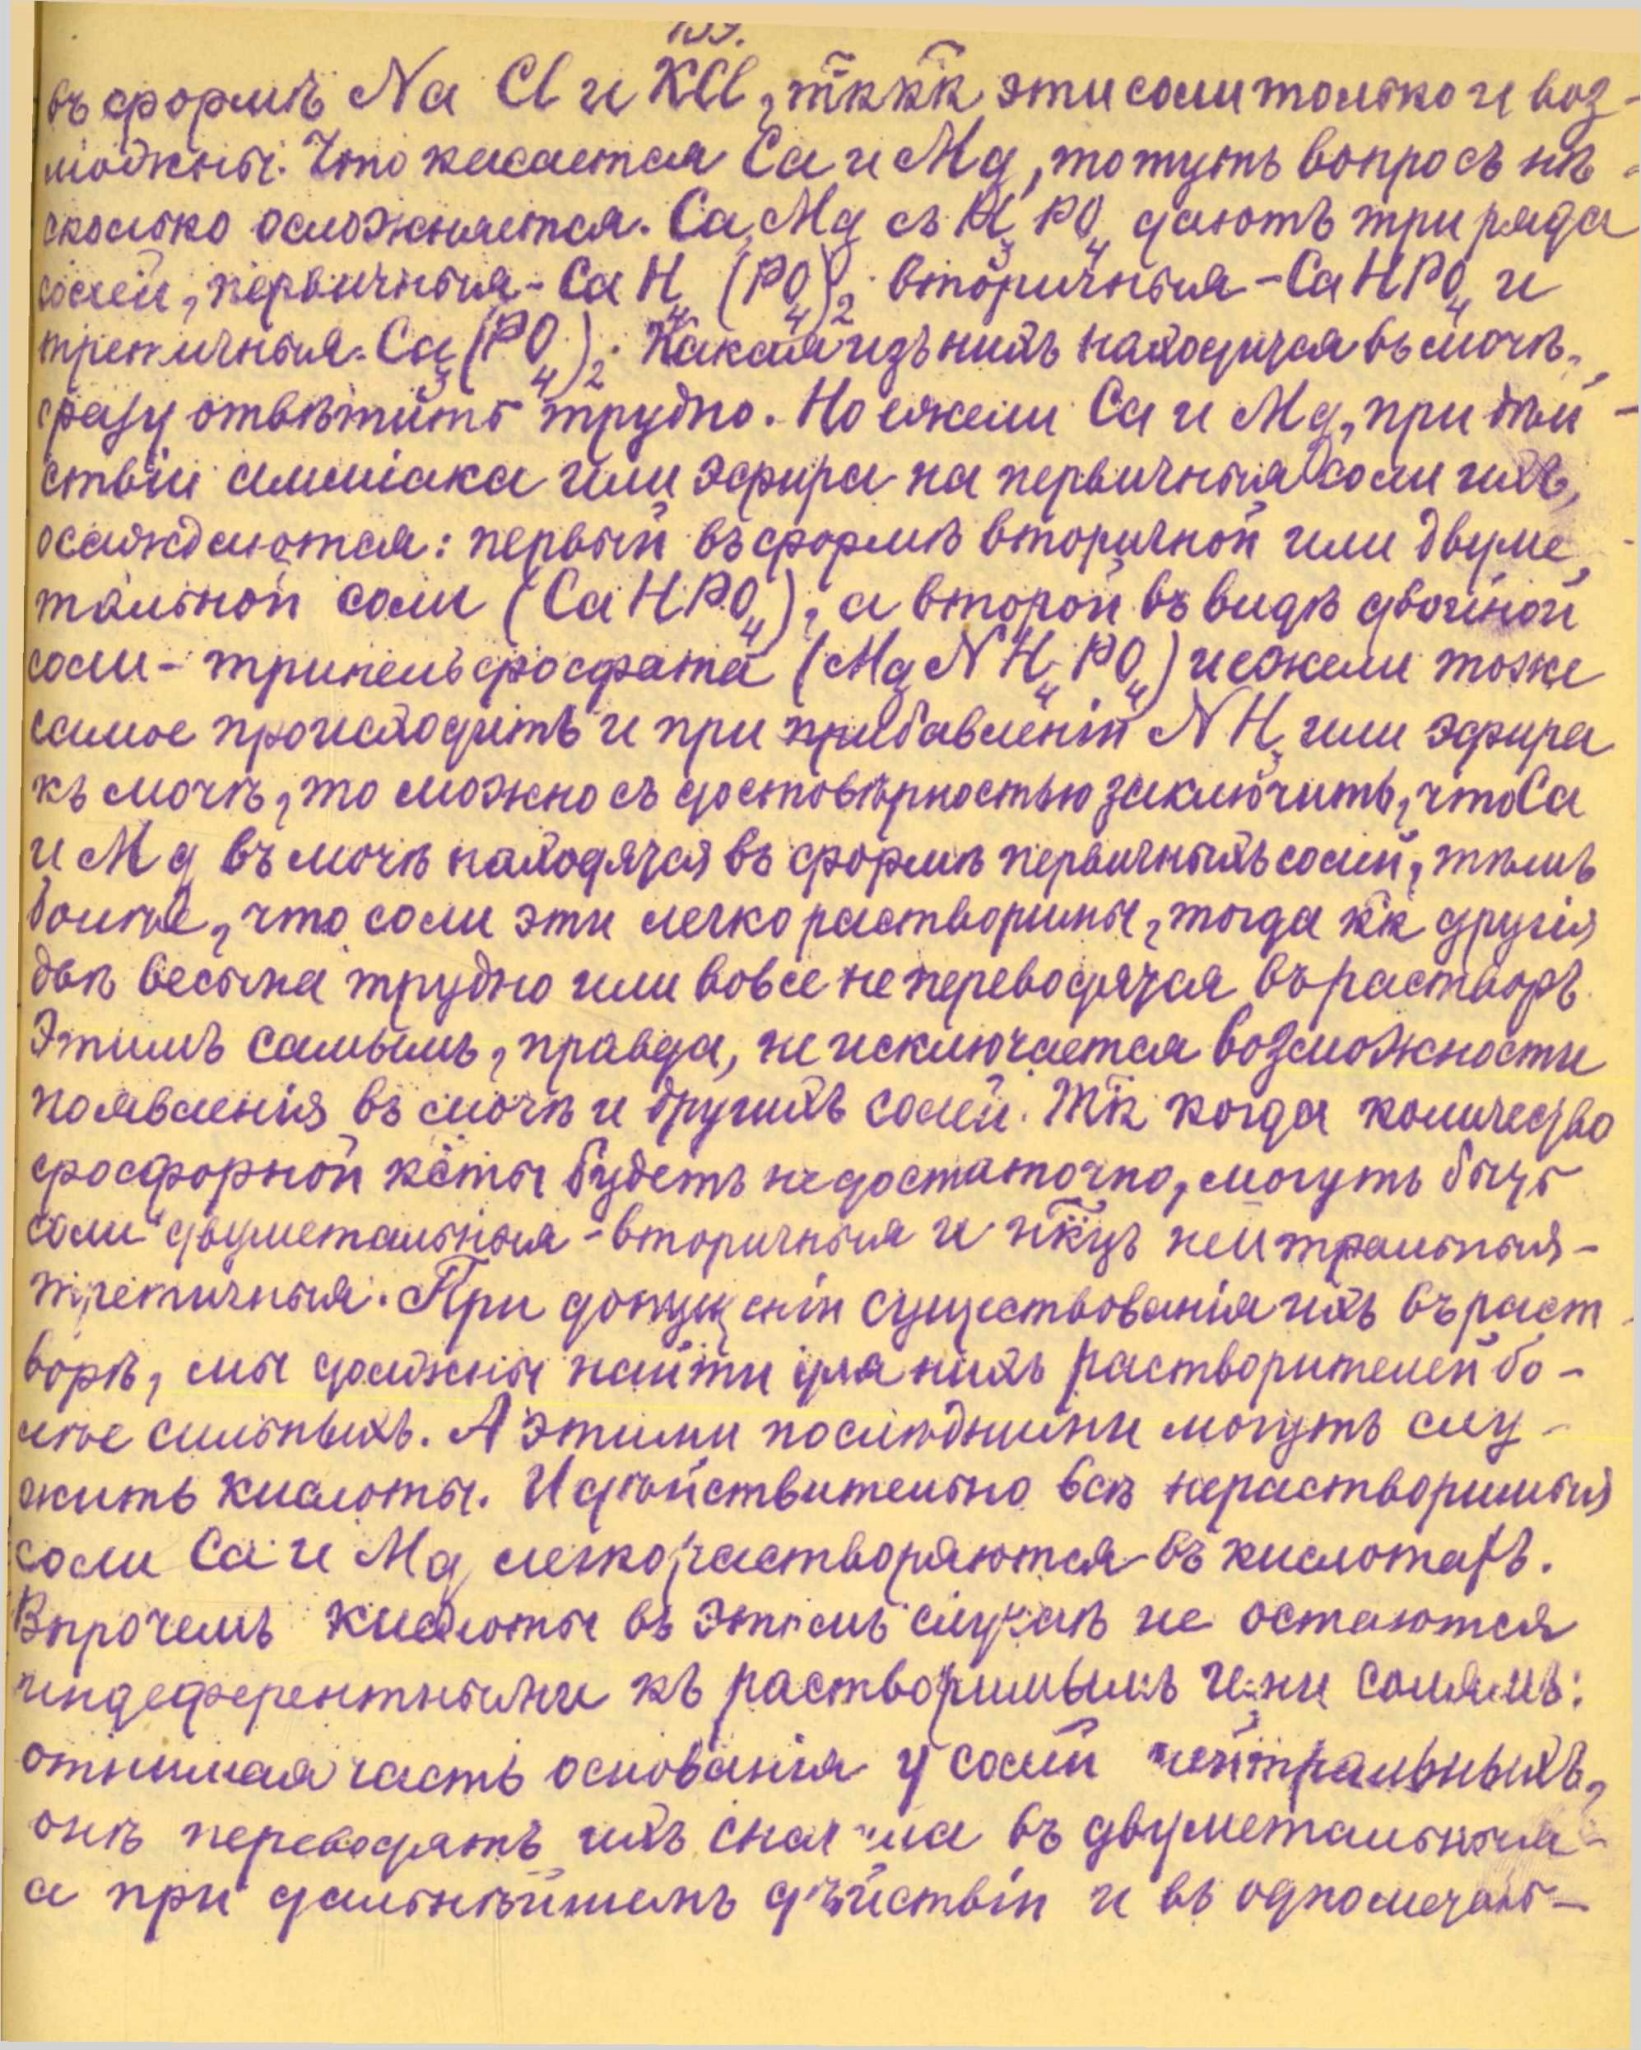 въ формѣ Na Cl и KCl, тккк эти соли только и воз-
можны. Что касается Ca и Mg, то тутъ вопросъ нѣ-
сколько осложняется. Ca, Mg съ H₃PO₄ даютъ три ряда
солей, первичныя - CaH₄(PO₄)₂. вторичныя - CaHPO₄ и
третичныя. Ca₃(PO₄)₂. Какая изъ нихъ находится въ мочѣ,
сразу отвѣтить трудно. Но ежели Ca и Mg, при дѣй-
ствіи амміака или эфира на первичныя соли ихъ,
осаждаются: первый въ формѣ вторичной или двуме,
тальной соли (CaHPO₄), а второй въ видѣ двойной
соли - трипельфосфата (MgNH₄PO₄) и ежели тоже
самое происходитъ и при прибавленіи NH₃ или эфира
къ мочѣ, то можно съ достовѣрностью заключить, что Ca
и Mg въ мочѣ находятся въ формѣ первичныхъ солей, тѣмъ
болѣе, что соли эти легко растворимы, тогда кк другія
двѣ весьма трудно или вовсе не переводятся въ растворъ.
Этимъ самымъ, правда, не исключается возможности
появленія въ мочѣ и другихъ солей. Тк когда количество
фосфорной кты будетъ недостаточно, могутъ быть
соли двуметальныя - вторичныя и нкцъ нейтральныя -
третичныя. При допущеніи существованія ихъ въ раст-
ворѣ, мы должны найти для нихъ растворителей бо-
лѣе сильныхъ. А этими послѣдними могутъ слу-
жить кислоты. И дѣйствительно всѣ нерастворимыя
соли Ca и Mg легко растворяются въ кислотахъ.
Впрочемъ кислоты въ этомъ случаѣ не остаются
индеферентными къ растворимымъ ими солямъ:
отнимая часть основанія у солей нейтральныхъ,
онѣ переводятъ ихъ сначала въ двуметальныя -
а при дальнѣйшемъ дѣйствіи и въ однометаль-